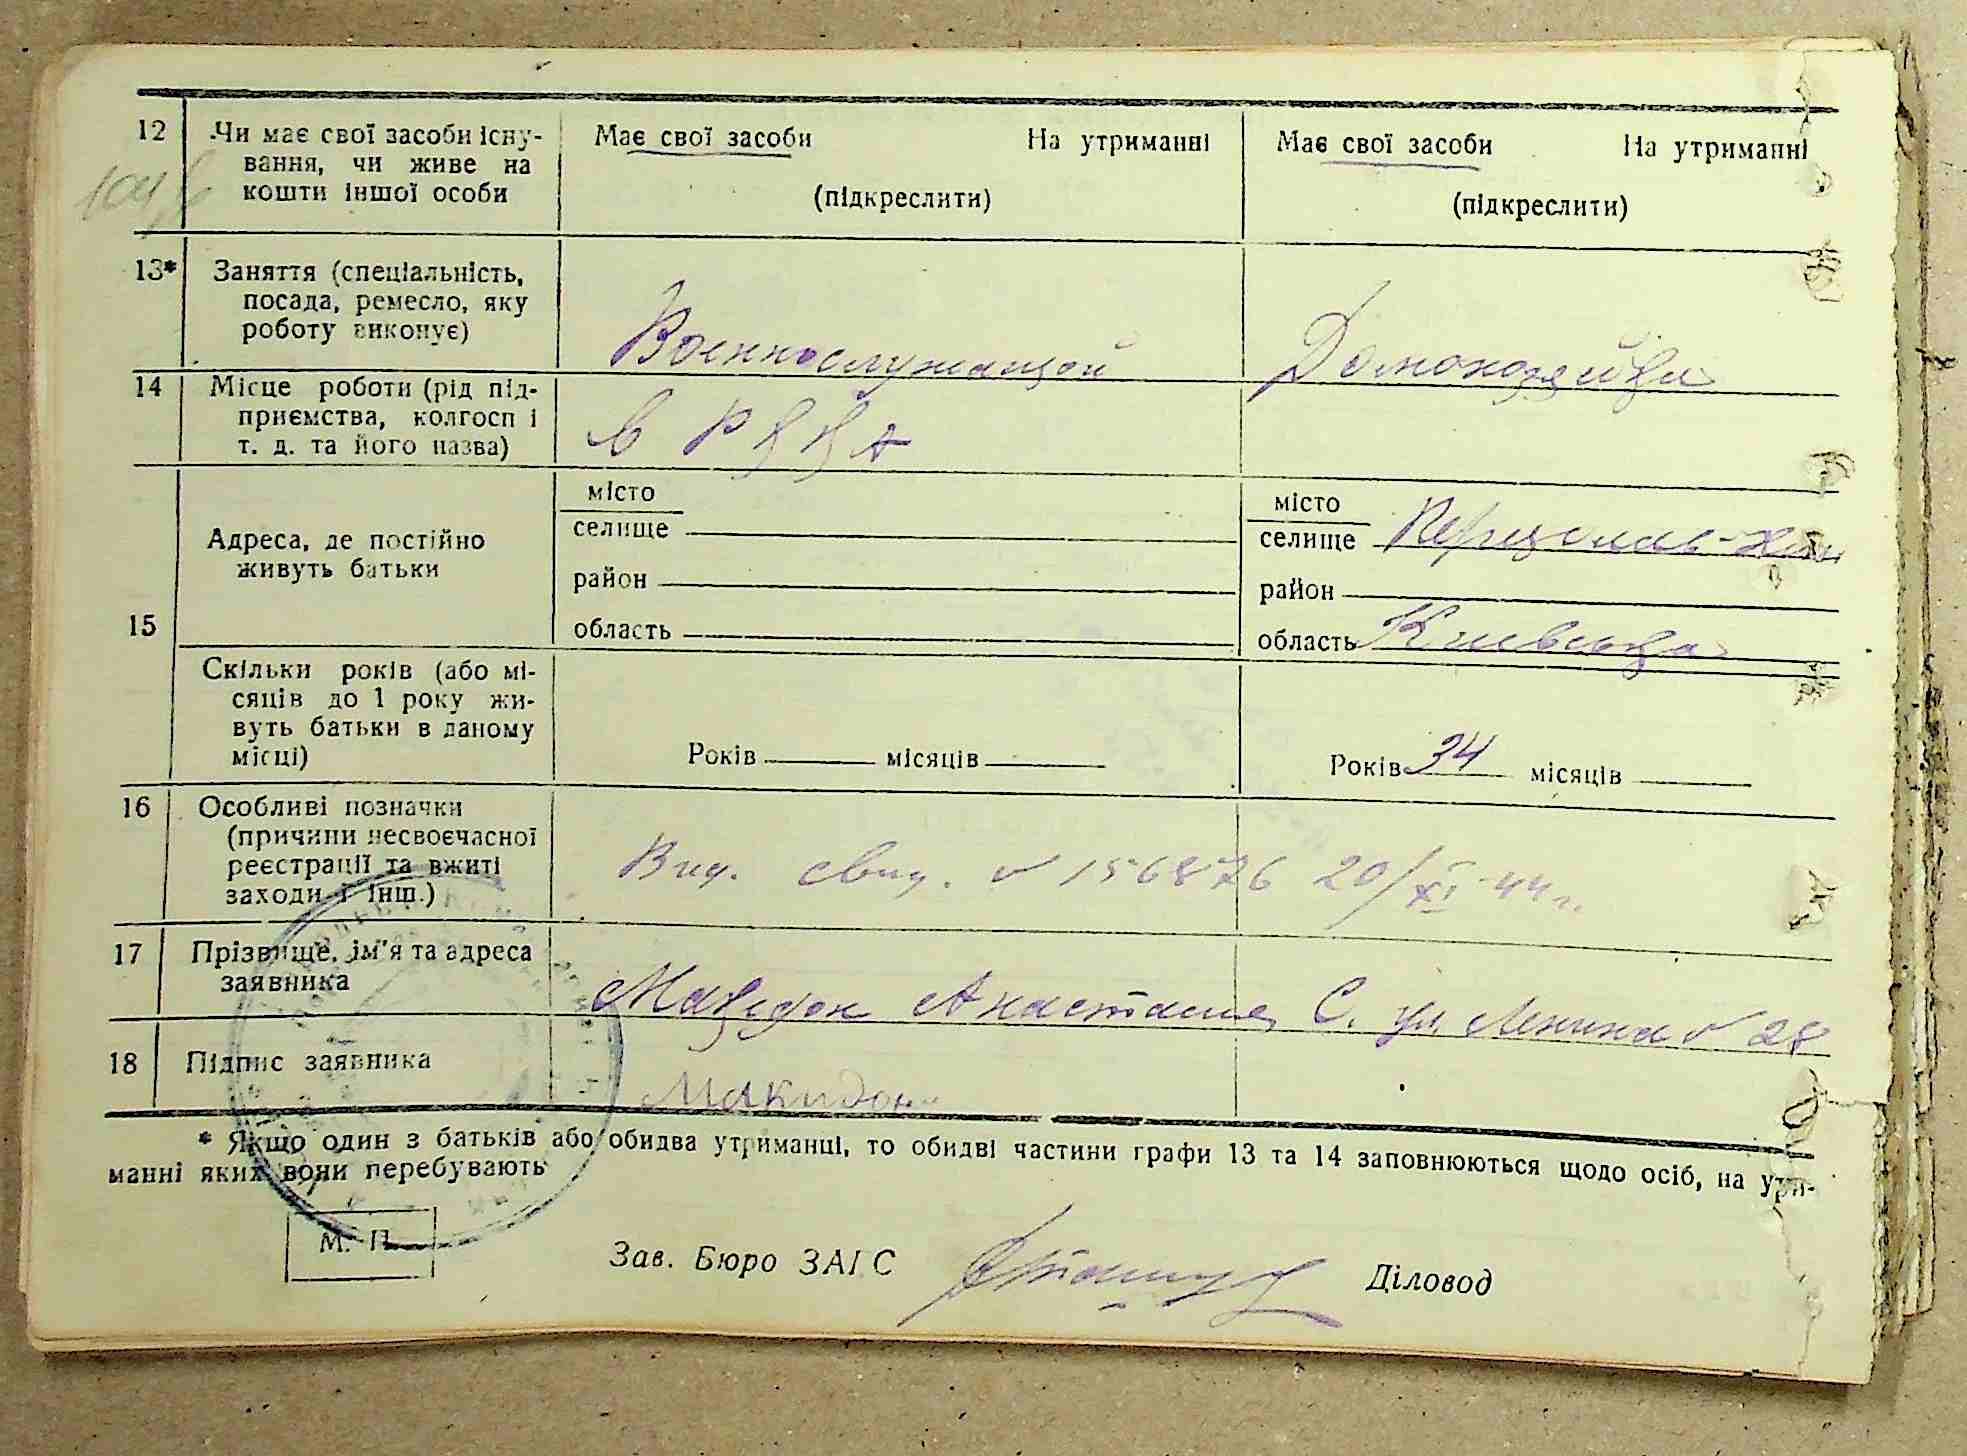 12 Чи має свої засоби існу-
вання, чи живе на
кошти іншої особи
Має свої засоби На утриманні
(підкреслити)
Має свої засоби На утриманні
(підкреслити)
13* Заняття (спеціальність,
посада, ремесло, яку
роботу виконує)
Военнослужащой
Домохозяйка
14 Місце роботи (рід під-
приємства, колгосп і
т. д. та його назва)
в РККА
15
Адреса, де постійно
живуть батьки
місто
селище
район
область
місто
селище Переяслав-Хм
район
область Киевська
Скільки років (або мі-
сяців до 1 року жи-
вуть батьки в даному
місці)
Років місяців
Років 34 місяців
16 Особливі позначки
(причини несвоєчасної
реєстрації та вжиті
заходи і інш.)
Выд. свид. № 156876 20/XI-44 г.
17 Прізвище, ім'я та адреса
заявника
Македон Анастасия С. ул. Ленина № 28
18 Підпис заявника
Макидон
* Якщо один з батьків або обидва утриманці, то обидві частини графи 13 та 14 заповнюються щодо осіб, на утри-
манні яких вони перебувають
М. П.
Зав. Бюро ЗАГС
Діловод